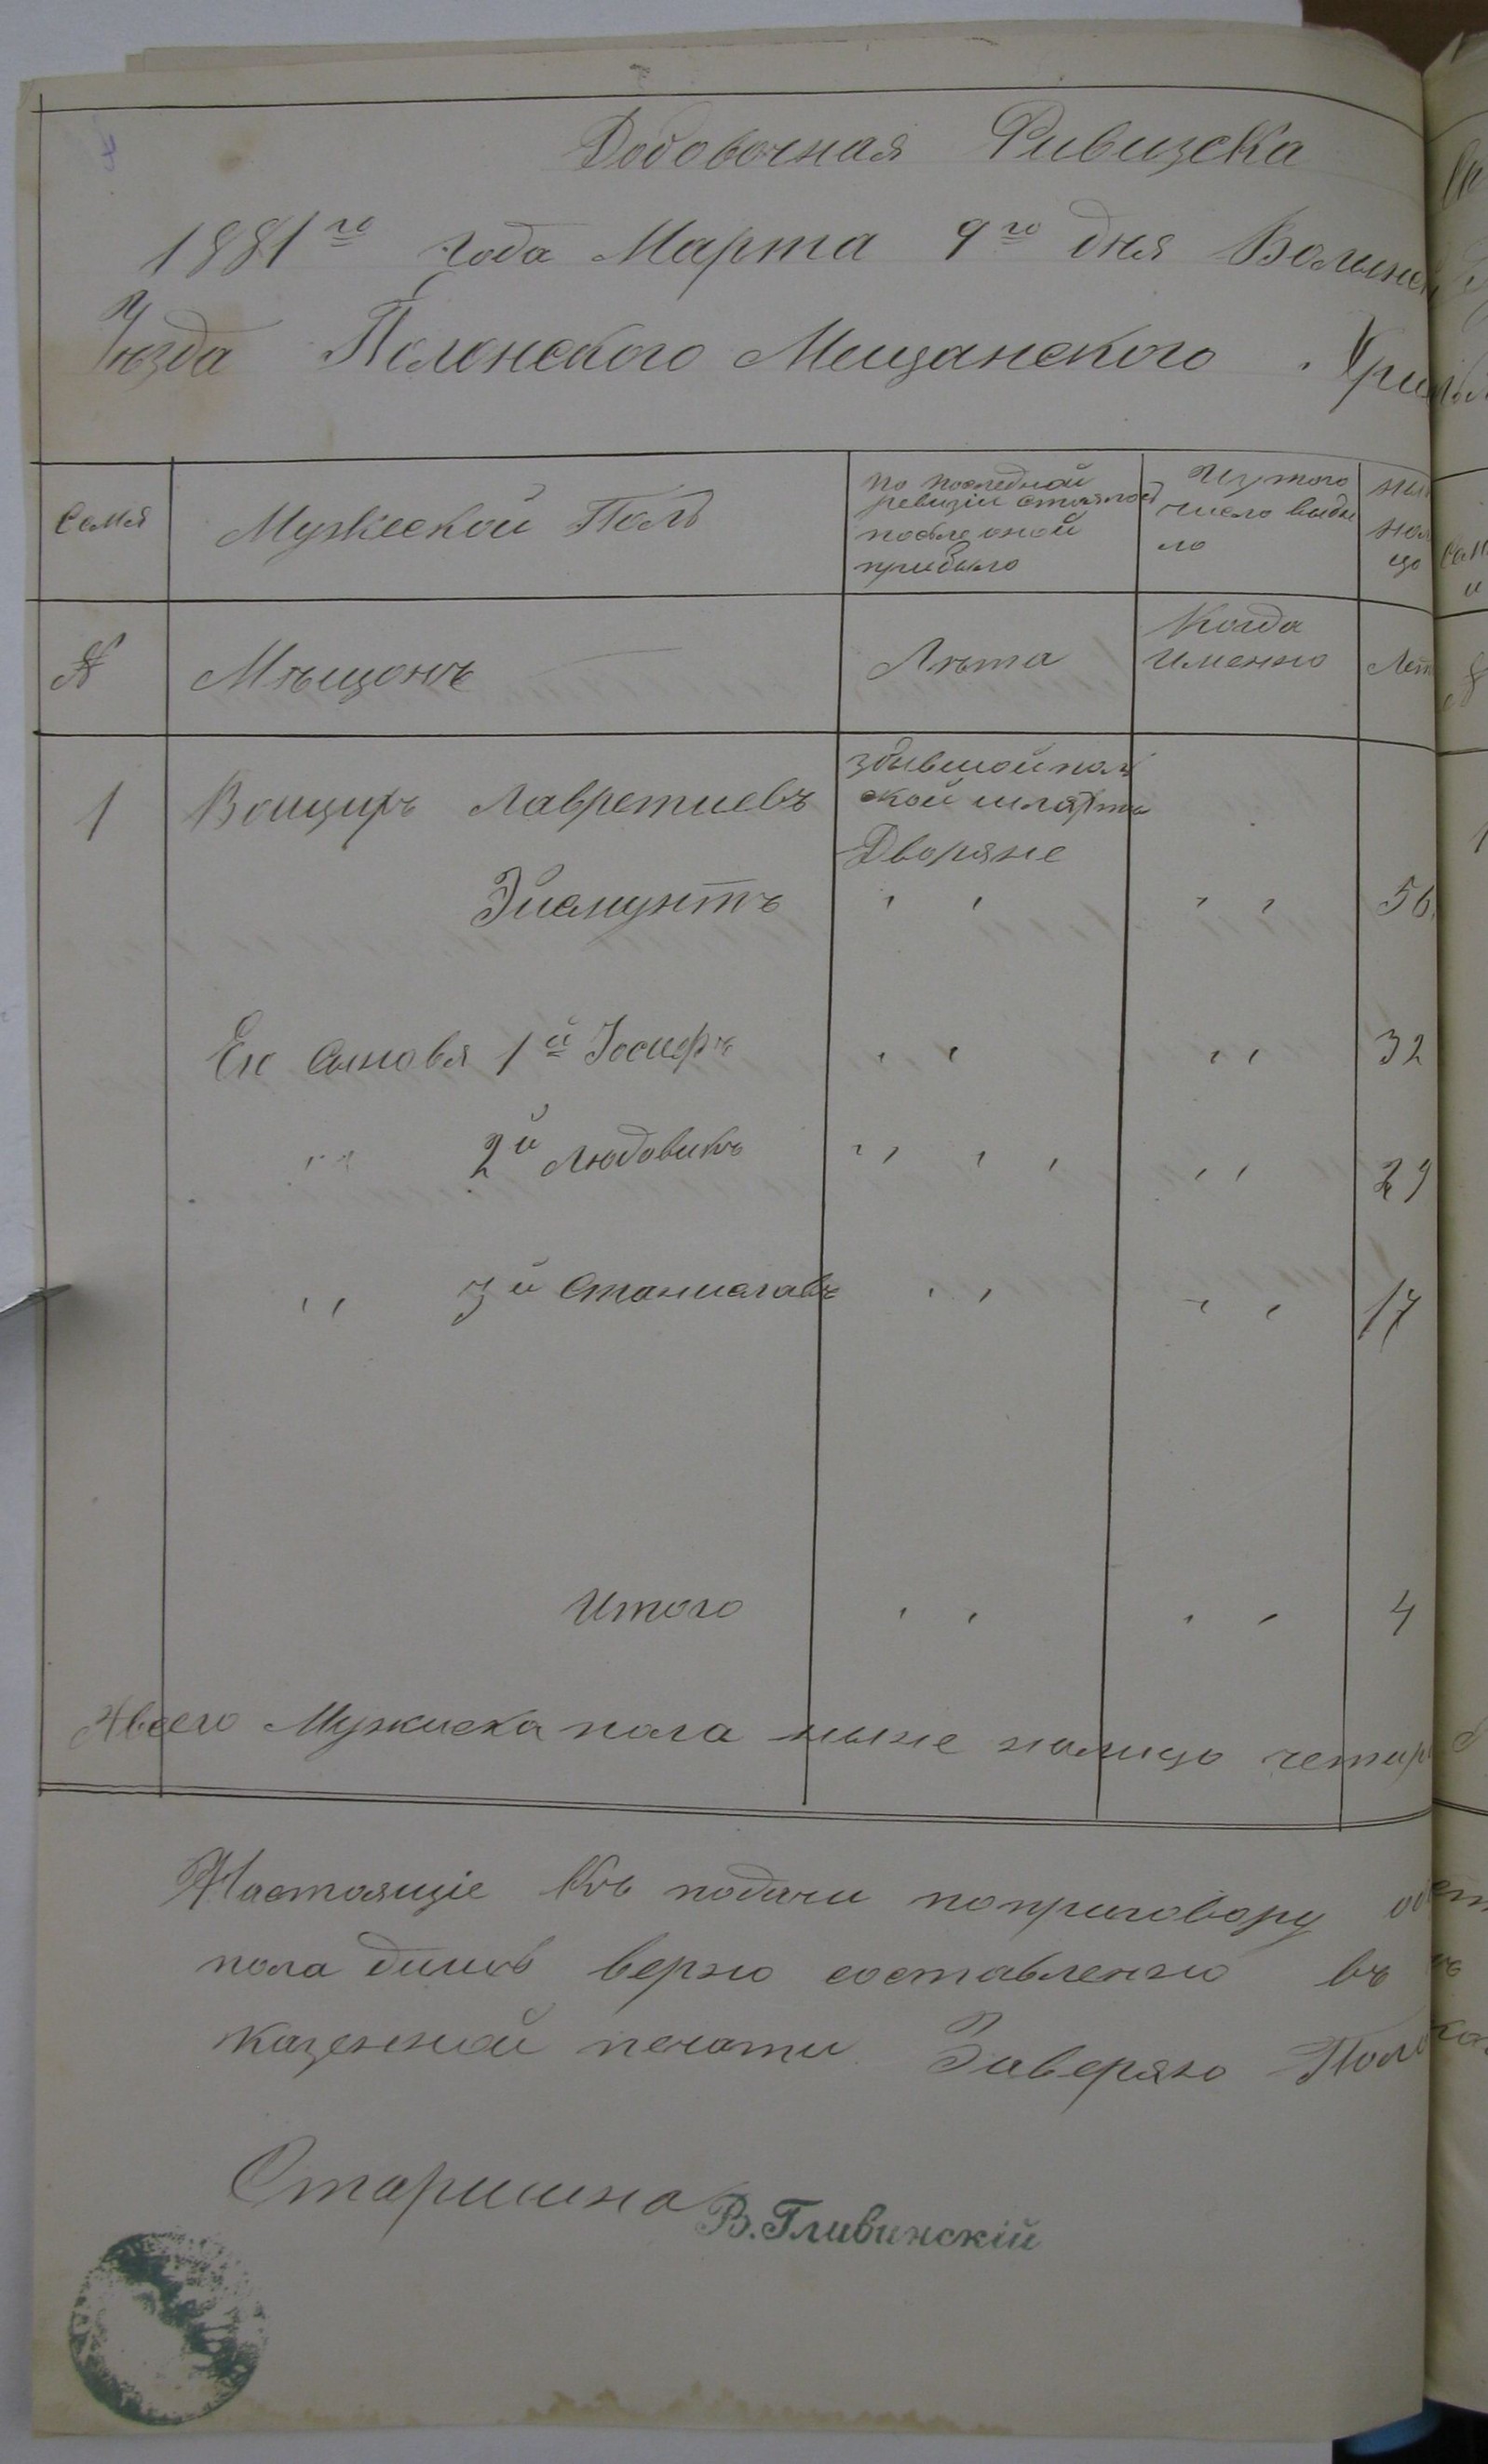 Додовочная Ривизска
1881го года Марта 9го дня Волынск
Уѣзда Полонского Мещанского
Семя
Мужеской Полъ
По последной
ревизіи
после оной
прибыло
Изтого
число выбы
ло
№
Мѣщонъ
Лѣта
Когда
Именно
Лет
1 Войцирь Лавретиевъ
збывшой пол
ской шляхты
Дворяне
Зисмунтъ " " " " 56
Ек Сыновя 1й Іосифъ " " " " 32
" " 2й Людовикъ " " " " " " 29
" " 3й Станиславъ " " " " 17
Итого " " " " 4
Авсего Мужиска пола ныне налицо четыр
Настоящіе Къ подачи поприговору
пола верно составленно въ
казенной печати Заверяю Поло
Старшина В. Гливинскій